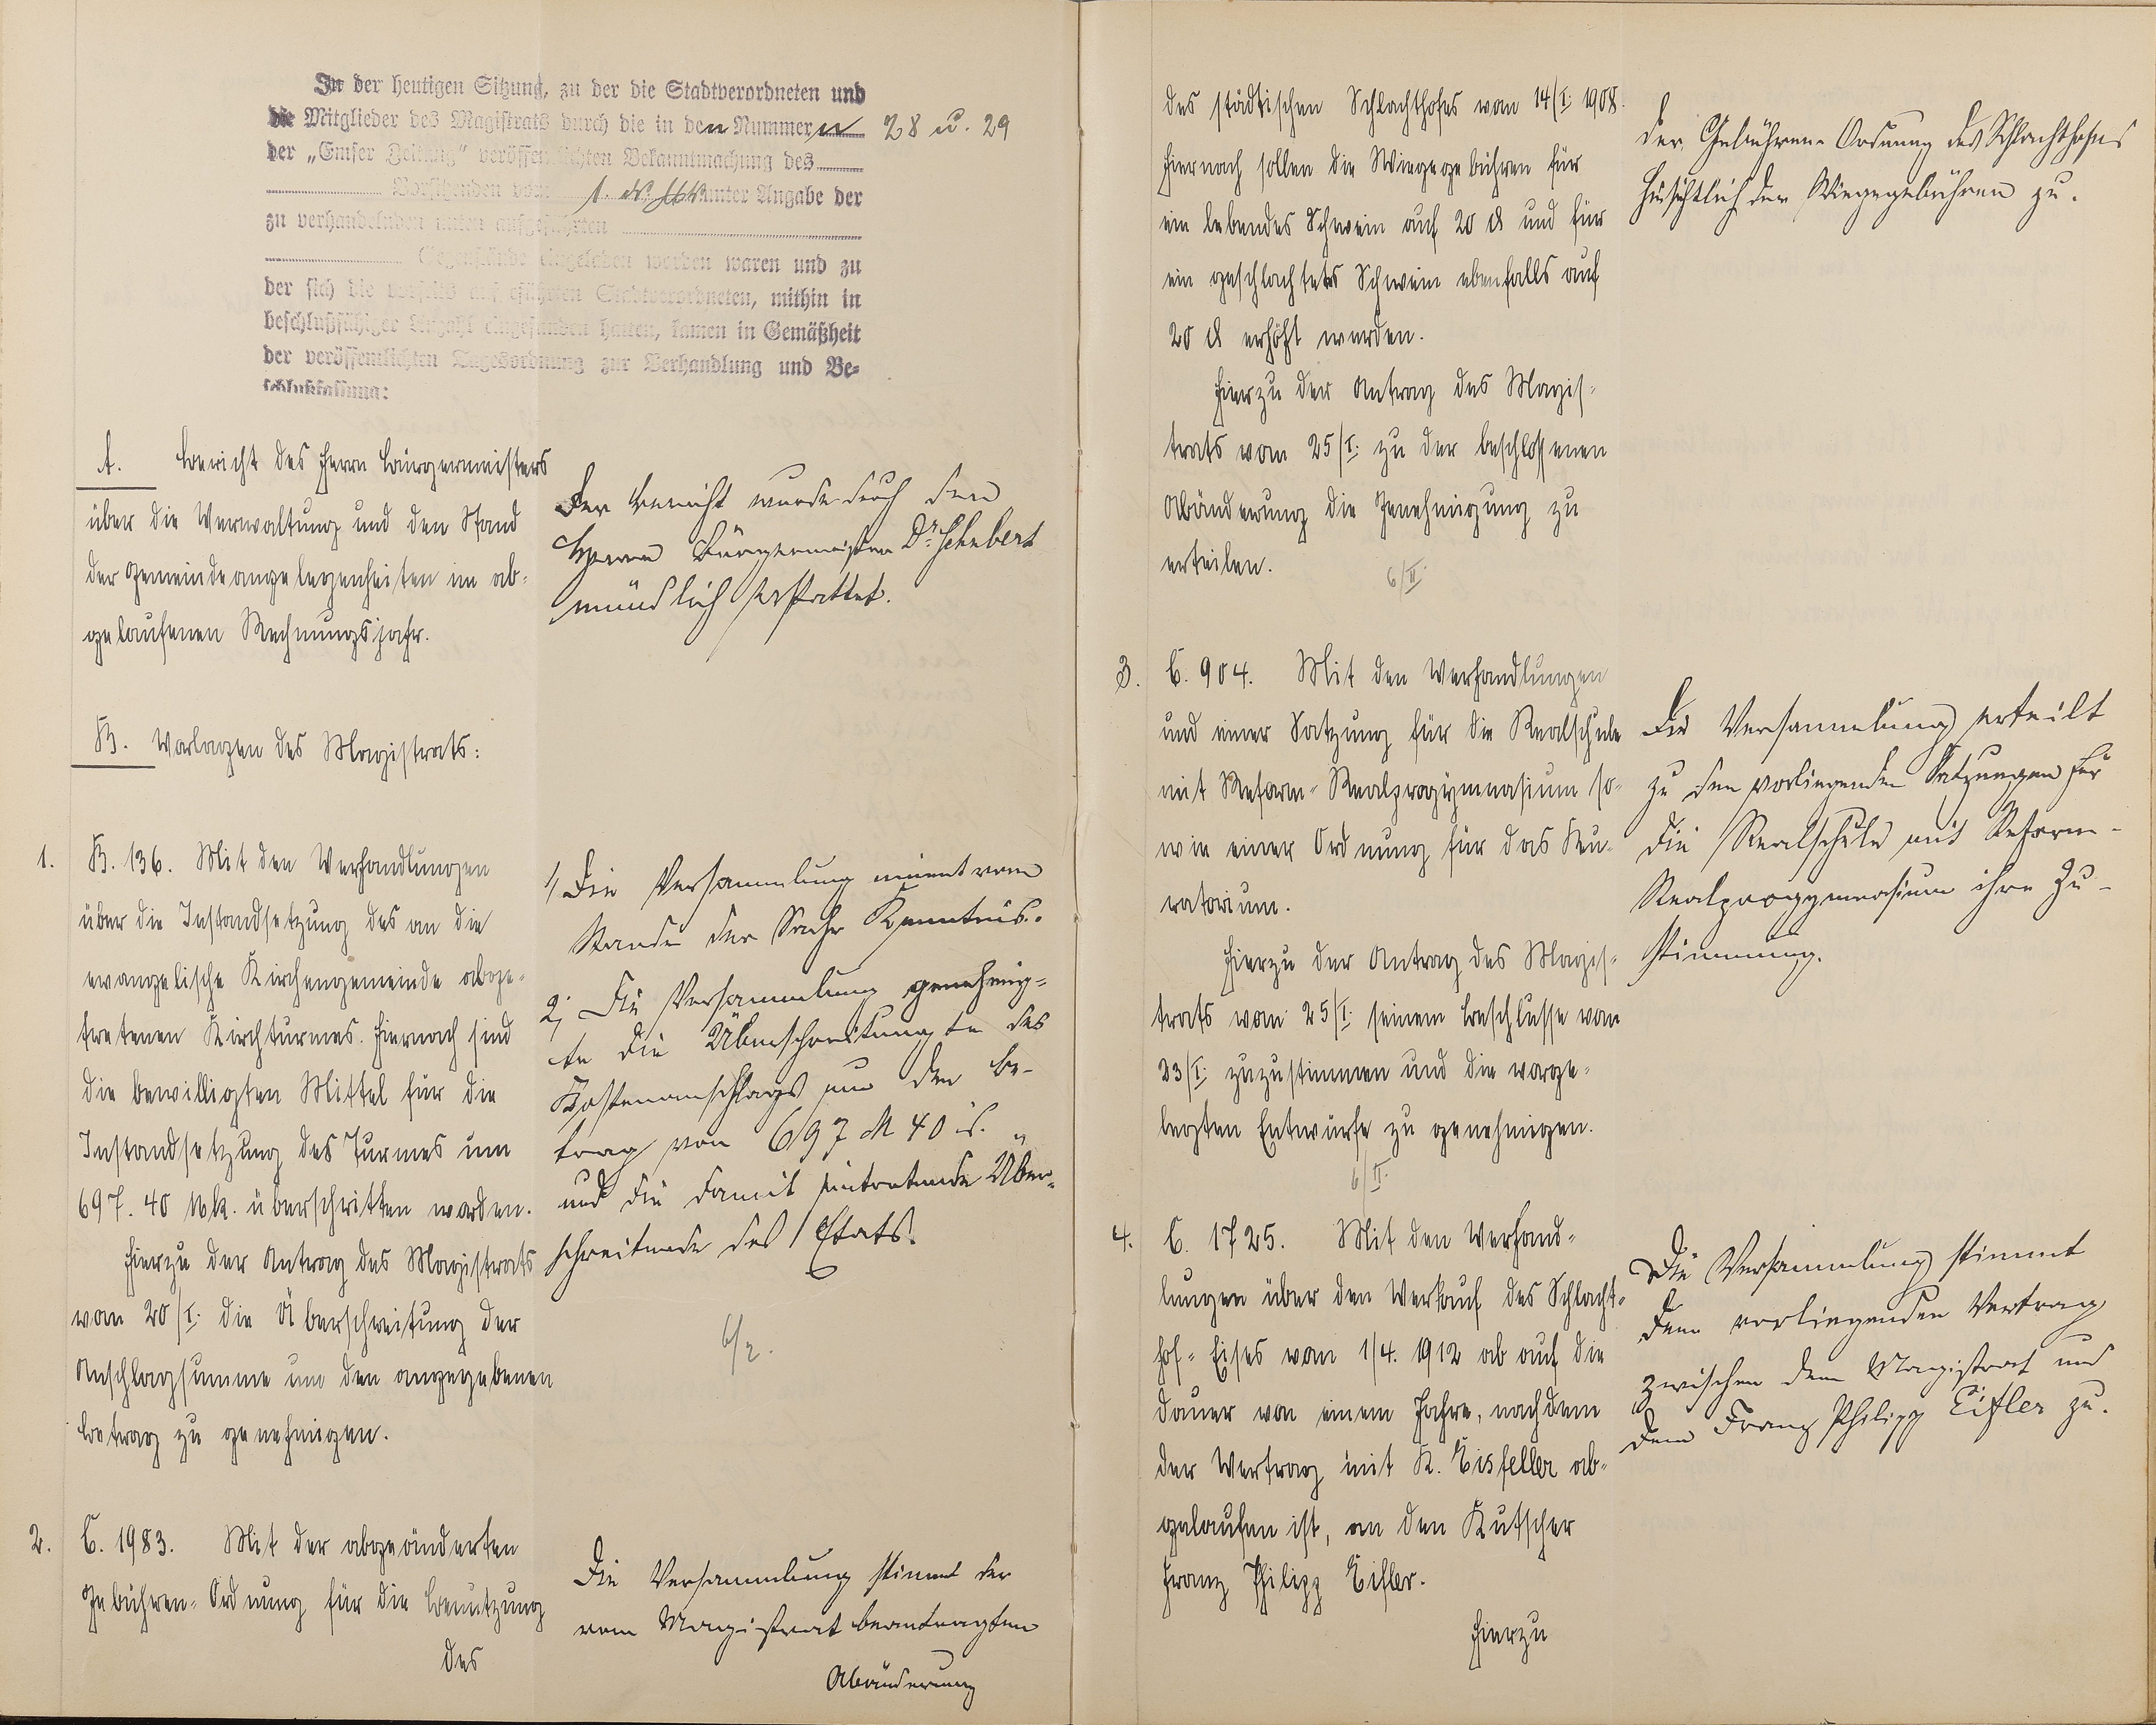 In der heutigen Sitzung, zu der die Stadtverordneten und
die Mitglieder des Magistrats durch die in den Nummern 28 u. 29
der „Emser Zeitung" veröffentlichten Bekanntmachung des
Vorsitzenden vom 1. ds. Mts. unter Angabe der
zu verhandelnden unten aufgeführten
Gegenstände eingeladen worden waren und zu
der sich die vorseits aufgeführten Stadtverordneten, mithin in
beschlußfähiger Anzahl eingefunden hatten, kamen in Gemäßheit
der veröffentlichten Tagesordnung zur Verhandlung und Be-
schlußfassung:
A. Bericht des Herrn Bürgermeisters
über die Verwaltung und den Stand
der Gemeindeangelegenheiten im ab-
gelaufenen Rechnungsjahr.
Der Bericht wurde durch den
Herrn Bürgermeister Dr. Schubert
mündlich erstattet.
B. Vorlagen des Magistrats:
1. B. 136. Mit den Verhandlungen
über die Instandsetzung des an die
evangelische Kirchengemeinde abge-
tretenen Kirchturmes. Hiernach sind
die bewilligten Mittel für die
Instandsetzung des Turmes um
697.40 Mk. überschritten worden.
Hierzu der Antrag des Magistrats
vom 20/I. die Überschreitung der
Anschlagsumme um den angegebenen
Betrag zu genehmigen.
1, Die Versammlung nimmt vom
Stande der Sache Kenntnis.
2, Die Versammlung genehmig-
te die Überschreitung des
Kostenanschlags um den Be-
trag von 697 M 40 d.
und die damit eintretende Über-
schreitende des Etats.
6/2.
2. C. 1983. Mit der abgeänderten
Gebühren-Ordnung für die Benutzung
des
Die Versammlung stimmt der
vom Magistrat beantragten
Abänderung
des städtischen Schlachthofes vom 14/I. 1908.
Hiernach sollen die Wiegegebühren für
ein lebendes Schwein auf 20 d und für
ein geschlachtetes Schwein ebenfalls auf
20 d erhöht werden.
Hierzu der Antrag des Magis-
trats vom 25/I. zu der beschlossenen
Abänderung die Genehmigung zu
erteilen.
6/II.
der Gebühren-Ordnung des Schlachthofes
hinsichtlich der Wiegegebühren zu.
3. C. 904. Mit den Verhandlungen
und einer Satzung für die Realschule
mit Reform-Realprogymnasium so-
wie einer Ordnung für das Ku-
ratorium.
Hierzu der Antrag des Magis-
trats vom 25/I. seinem Beschlusse vom
23/I. zuzustimmen und die vorge-
legten Entwürfe zu genehmigen.
6/II.
Die Versammlung erteilt
zu den vorliegenden Satzungen für
die Realschule mit Reform-
Realprogymnasium ihre Zu-
stimmung.
4. C. 1725. Mit den Verhand-
lungen über den Verkauf des Schlacht-
hof-Eises vom 1/4. 1912 ab auf die
Dauer von einem Jahre, nachdem
der Vertrag mit K. Eisfeller ab-
gelaufen ist, an den Kutscher
Franz Philipp Eifler.
Hierzu
Die Versammlung stimmt
dem vorliegenden Vertrag
zwischen dem Magistrat und
dem Franz Philipp Eifler zu.